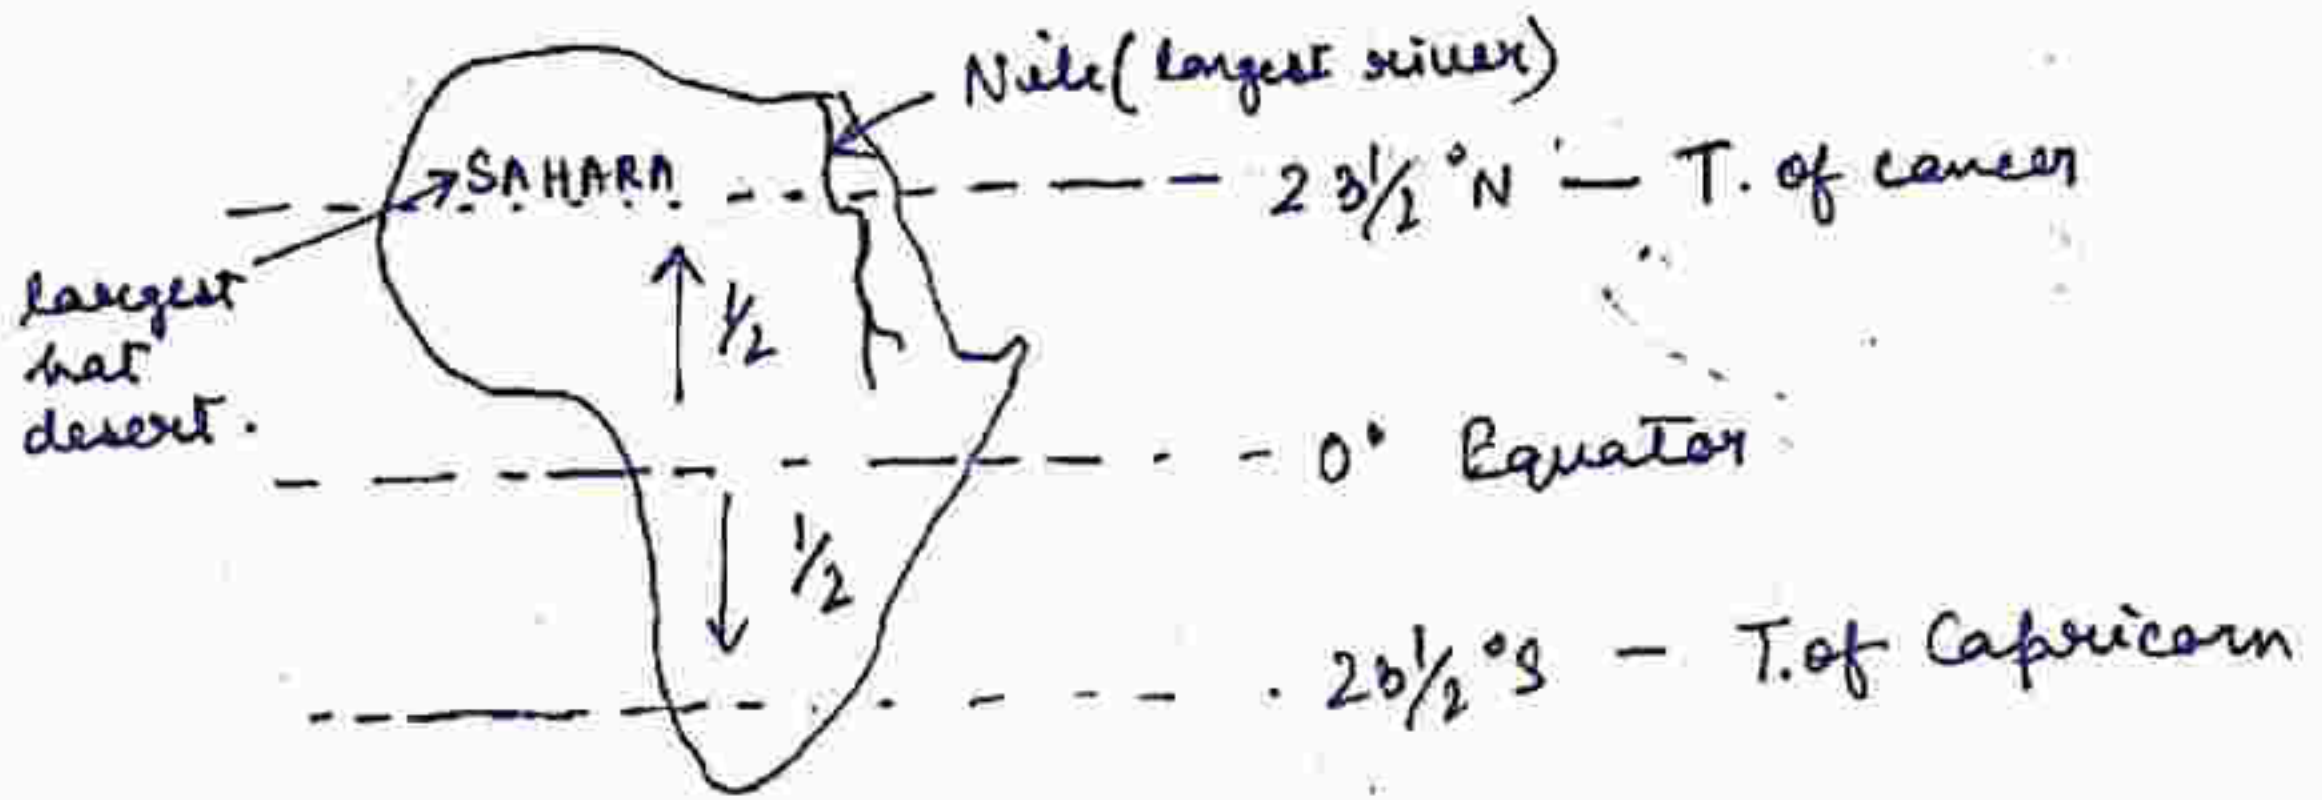 Nile (largest river)
SAHARA
23 1/2 °N — T. of cancer
largest
hot
desert.
1/2
0° Equator
1/2
23 1/2 °S — T. of Capricorn